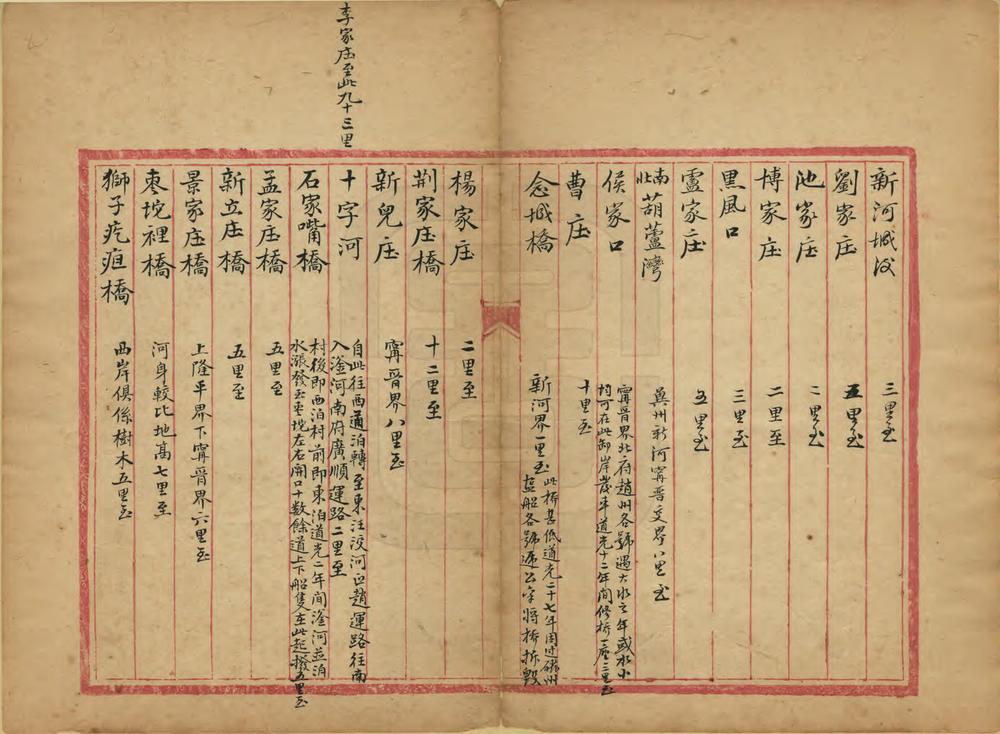 新河城汝
三里至
劉家庄
五里至
池家庄
二里至
博家庄
二里至
黑風口
三里至
盧家庄
五里至
南北葫蘆灣
冀州新河寗晉交界八里至
侯家口
寗晉界北府趙州各號遇大水之年或水小
均可在此卸岸歲年道光十二年間修桥一座三里至
曹庄
十里至
念城橋
新河界一里至
此桥甚低道光二十七年因过磁州
塩船各號遞公禀将桥拆毀
楊家庄
二里至
荆家庄橋
十二里至
新兒庄
寗晉界八里至
十字河
自此往西通泊轉至東汪汶河正趙運路往南
入滏河南府廣順運路二里至
李家庄至此九十三里
石家嘴橋
村後即西泊村前即東泊道光二年间滏河並泊
水漲發至枣坨左右開口十数餘道上下船隻在此起撥五里至
孟家庄橋
五里至
新立庄橋
五里至
景家庄橋
上隆平界下寗晉界六里至
枣坨裡橋
河身較比地高七里至
獅子疙疸橋
西岸俱係樹木五里至